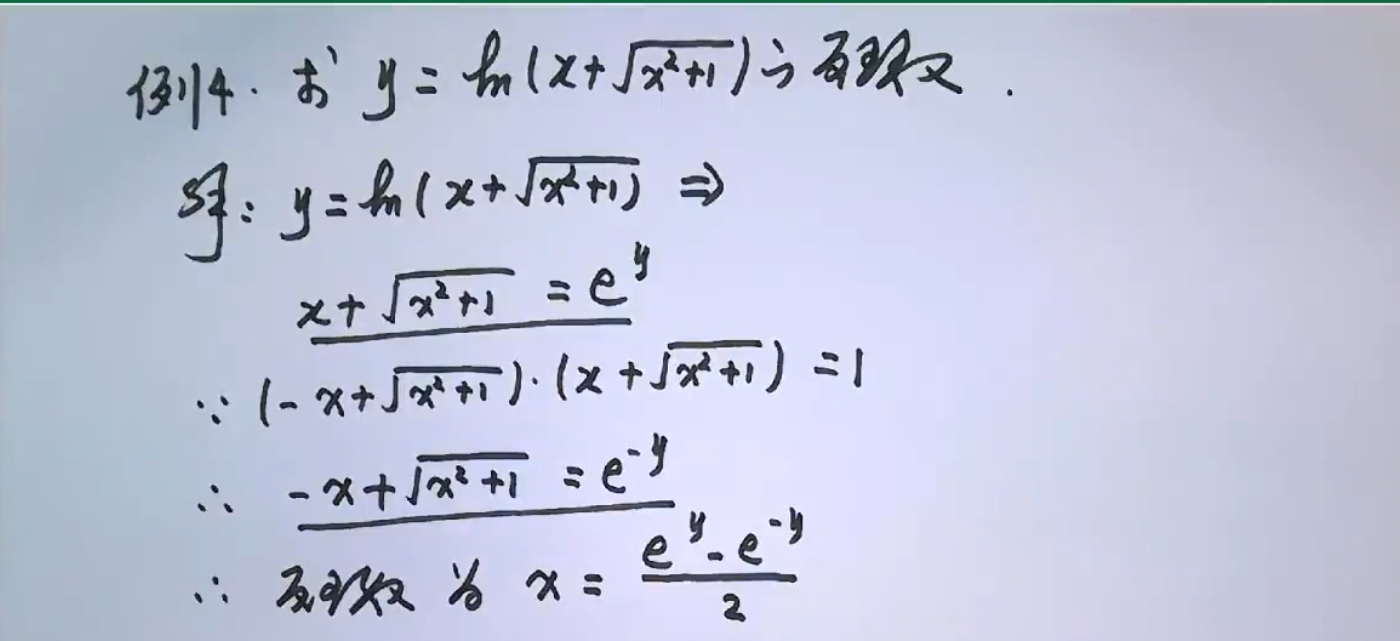 例4. 求 y = ln(x+√(x²+1)) 之反函数.
解: y = ln(x+√(x²+1)) ⇒
x+√(x²+1) = e^y
∵ (-x+√(x²+1))·(x+√(x²+1)) = 1
∴ -x+√(x²+1) = e^(-y)
∴ 反函数为 x = (e^y - e^(-y))/2